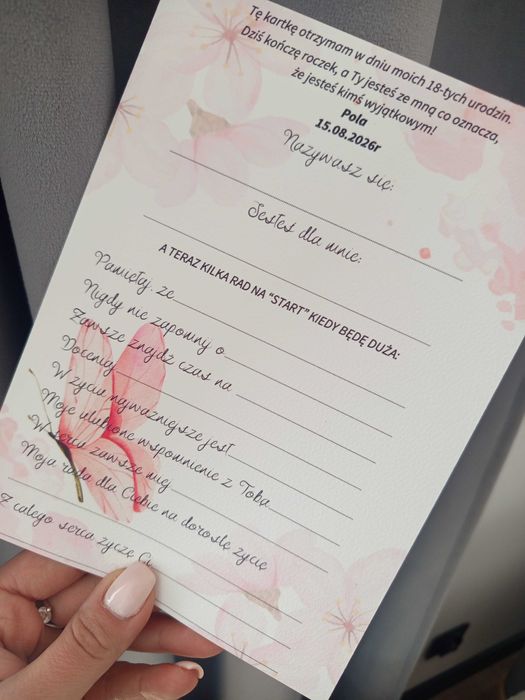 Tę kartkę otrzymam w dniu moich 18-tych urodzin.
Dziś kończę roczek, a Ty jesteś ze mną co oznacza,
że jesteś kimś wyjątkowym!
Pola
15.08.2026r
Nazywasz się:
Jesteś dla mnie:
A TERAZ KILKA RAD NA "START" KIEDY BĘDĘ DUŻA:
Pamiętaj, że
Nigdy nie zapomnij o
Zawsze znajdź czas na
Doceniaj
W życiu najważniejsze jest
Moje ulubione wspomnienie z Tobą
W sercu zawsze miej
Moja rada dla Ciebie na dorosłe życie
Z całego serca życzę Ci